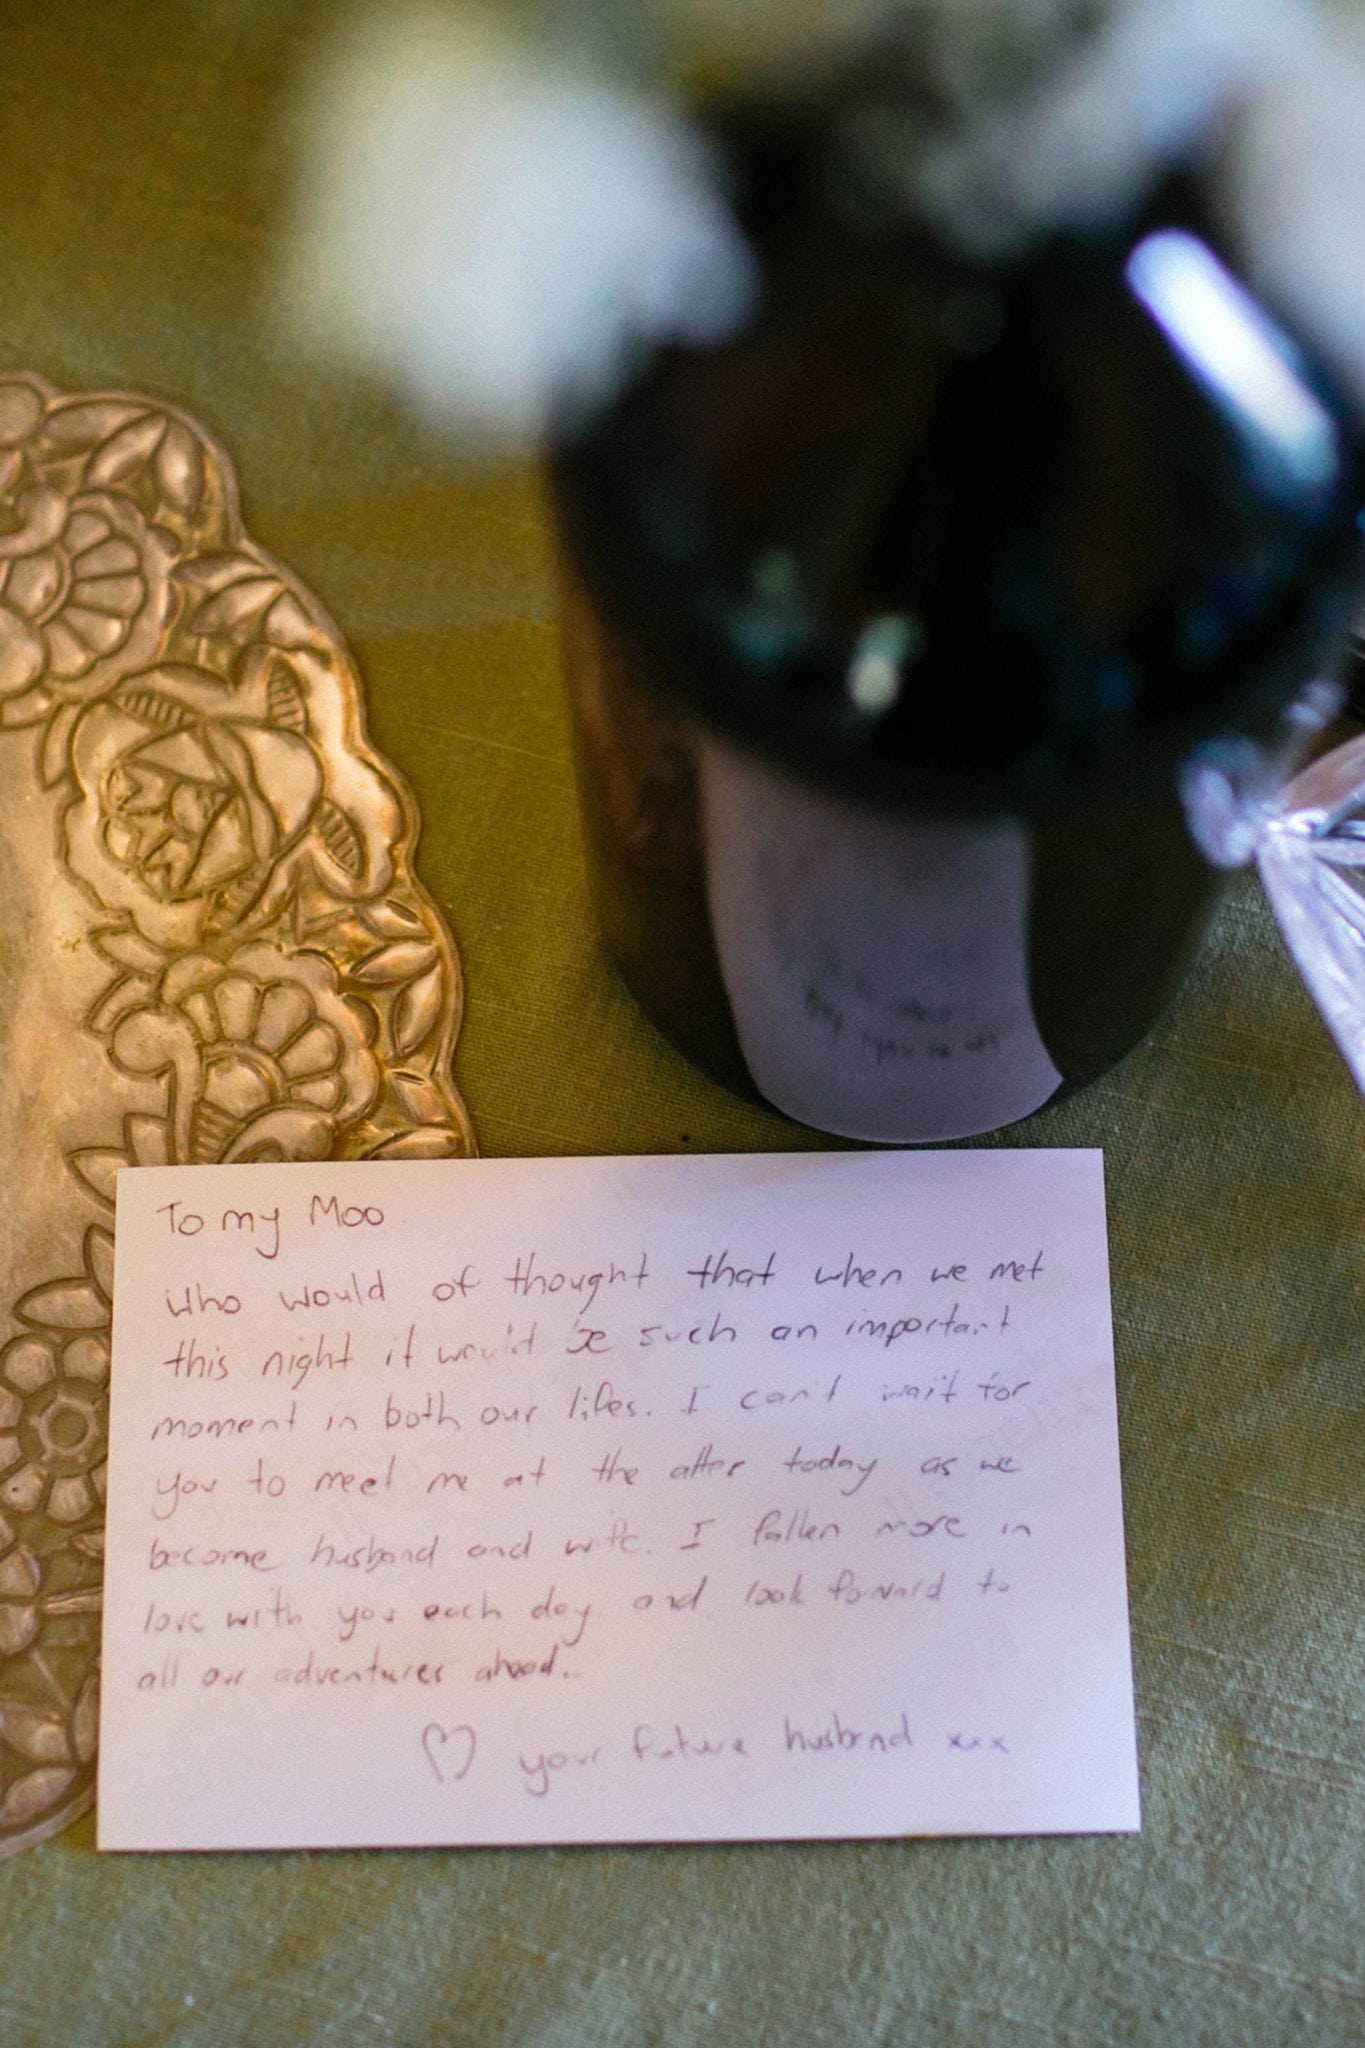 To my Moo
Who would of thought that when we met
this night it would be such an important
moment in both our lifes. I can't wait for
you to meet me at the alter today as we
become husband and wife. I fallen more in
love with you each day and look forward to
all our adventures ahead.
♡ your future husband xxx